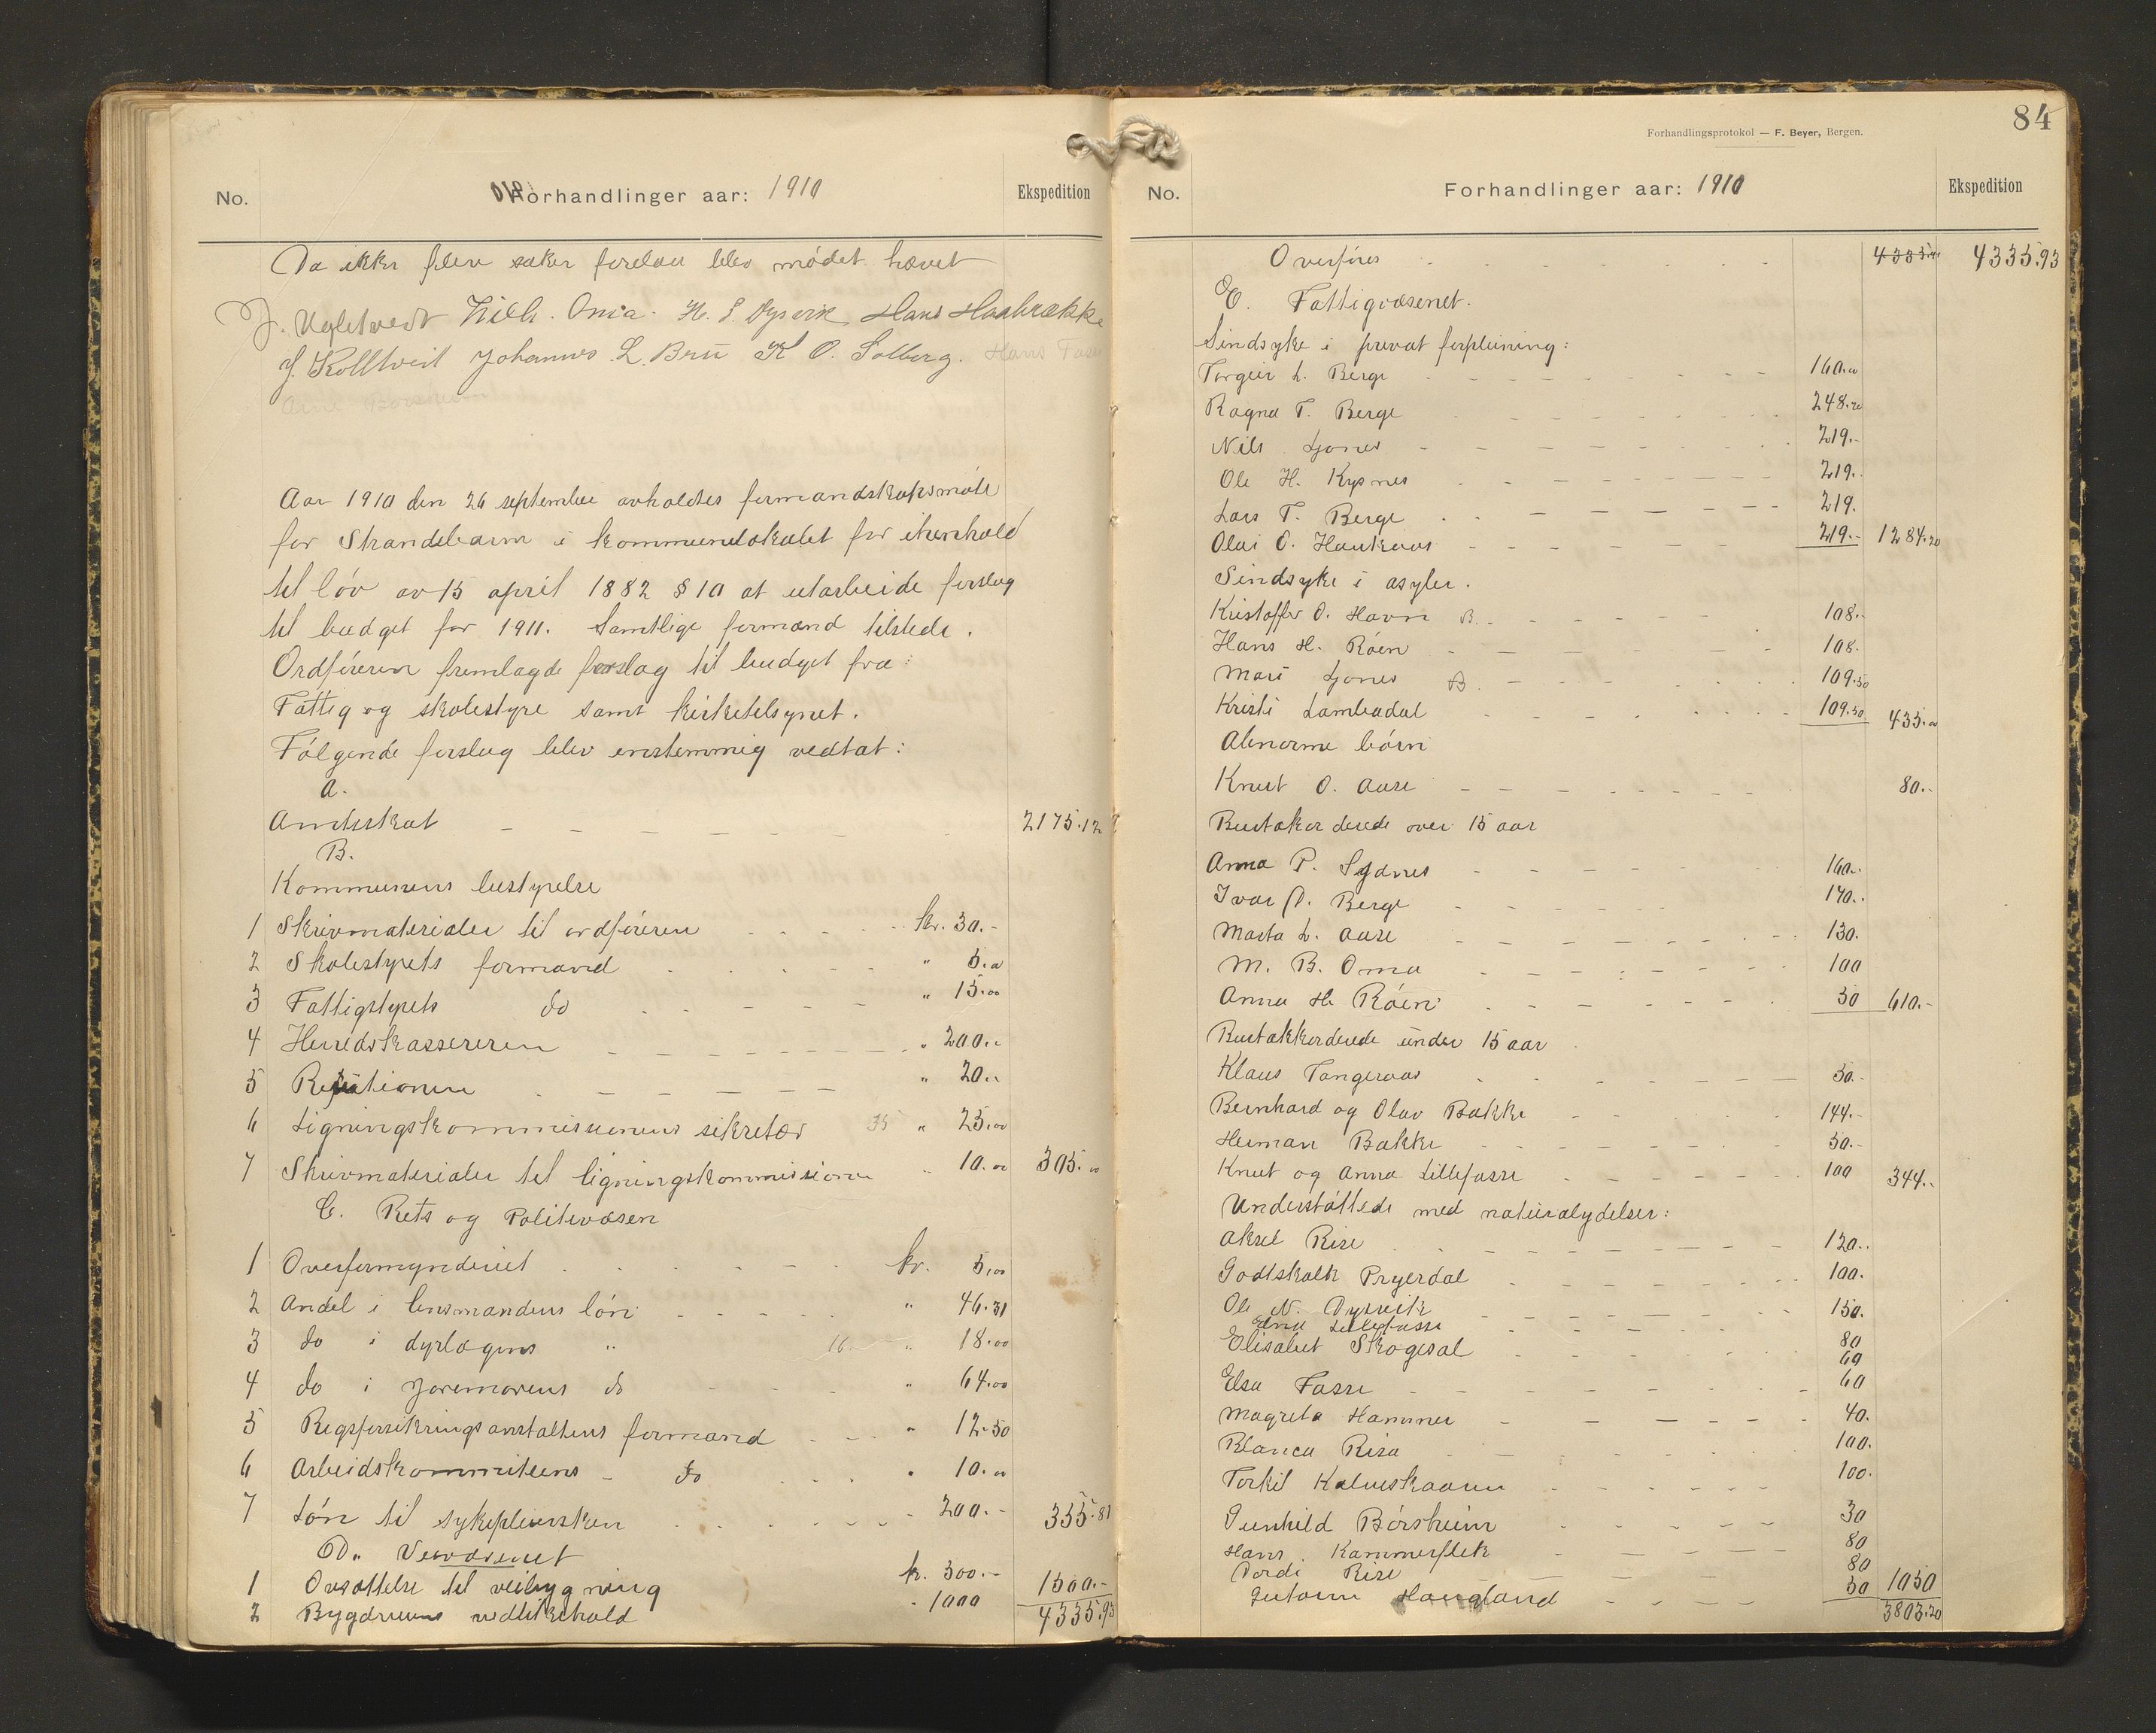 No. Forhandlinger aar: 1910 Ekspedition
Da ikke flere saker forelaa blev mødet hævet
J. Ugletvedt Vilh. Oma. H. S. Dysvik Hans Haabrække
J. Kolltveit Johannes L. Bru K O. Solberg.
Aar 1910 den 26 september avholdtes formandskapsmøte
for Strandebarm i kommunelokalet for i henhold
til lov av 15 april 1882 § 10 at utarbeide forslag
til budget for 1911. Samtlige formænd tilstede.
Ordføreren fremlagde forslag til budget fra:
Fattig og skolestyre samt kirketilsynet.
Følgende forslag blev enstemmig vedtat:
A.
Amtsskat 2175.12
B.
Kommunens bestyrelse
1 Skrivmaterialer til ordføreren kr. 30.-
2 Skolestyrets formand " 5.00
3 Fattigstyrets do " 15.00
4 Herredskassereren " 200.-
5 Revisionen " 20.-
6 Ligningskommisionens sekretær 35 " 25.00
7 Skrivmaterialer til ligningskommisionen " 10.00 305.00
C. Rets og Politivæsen
1 Overformynderiet kr. 5.00
2 Andel i lensmandens løn " 46.31
3 do i dyrlægens " 16 " 18.00
4 do i Joremorens do " 64.00
5 Rigsforsikringsanstaltens formand " 12.50
6 Arbeidskommiteens do " 10.00
7 Løn til sykepleiersken 200.- 355.81
D. Veivæsenet
1 Avsættelse til veibygning kr. 500.- 1500.-
2 Bygdeveiens vedlikehold " 1000 4335.93
84
Forhandlingsprotokol — F. Beyer, Bergen.
No. Forhandlinger aar: 1910 Ekspedition
Overføres 4335.93 4335.93
E. Fattigvæsenet.
Sindsyke i privat forpleining:
Torgeir L. Berge 160.00
Ragna T. Berge 248.20
Nils Ljones 219.-
Ole H. Kysnes 219.-
Lars T. Berge 219.
Olai O. Haukaas 219.- 1284.20
Sindsyke i asyler.
Kristoffer O. Havn B. 108.-
Hans H. Røen 108.
Mari Ljones B. 109.50
Kristi Lambadal 109.50 435.00
Abnorme børn
Knut O. Aase 80.-
Bortakorderede over 15 aar
Anna P. Sydnes 160.-
Ivar O. Berge 170.-
Marta L. Aase 130.
M. B. Oma 100
Anna H. Røen 50 610.-
Bortakkorderede under 15 aar
Klaus Tangeraas 50.-
Bernhard og Olav Bakke 144.-
Herman Bakke 50.-
Knut og Anna Lillefosse 100 344.-
Understøttede med naturalydelser:
Aksel Rise 120.-
Godtskalk Pryerdal 100.
Ole N. Dysvik 150.
Lillefosse 80
Elisabet Skogesal 60
Elsa Fosse 60
Magreta Hammer 40.
Blanca Risa 100.
Torkil Kalveskaaren 100.
Gunhild Børsheim 30
Hans Kammerflek 80
Dordi Rise 80
Guttorm Haugland 50 1050
3803.20